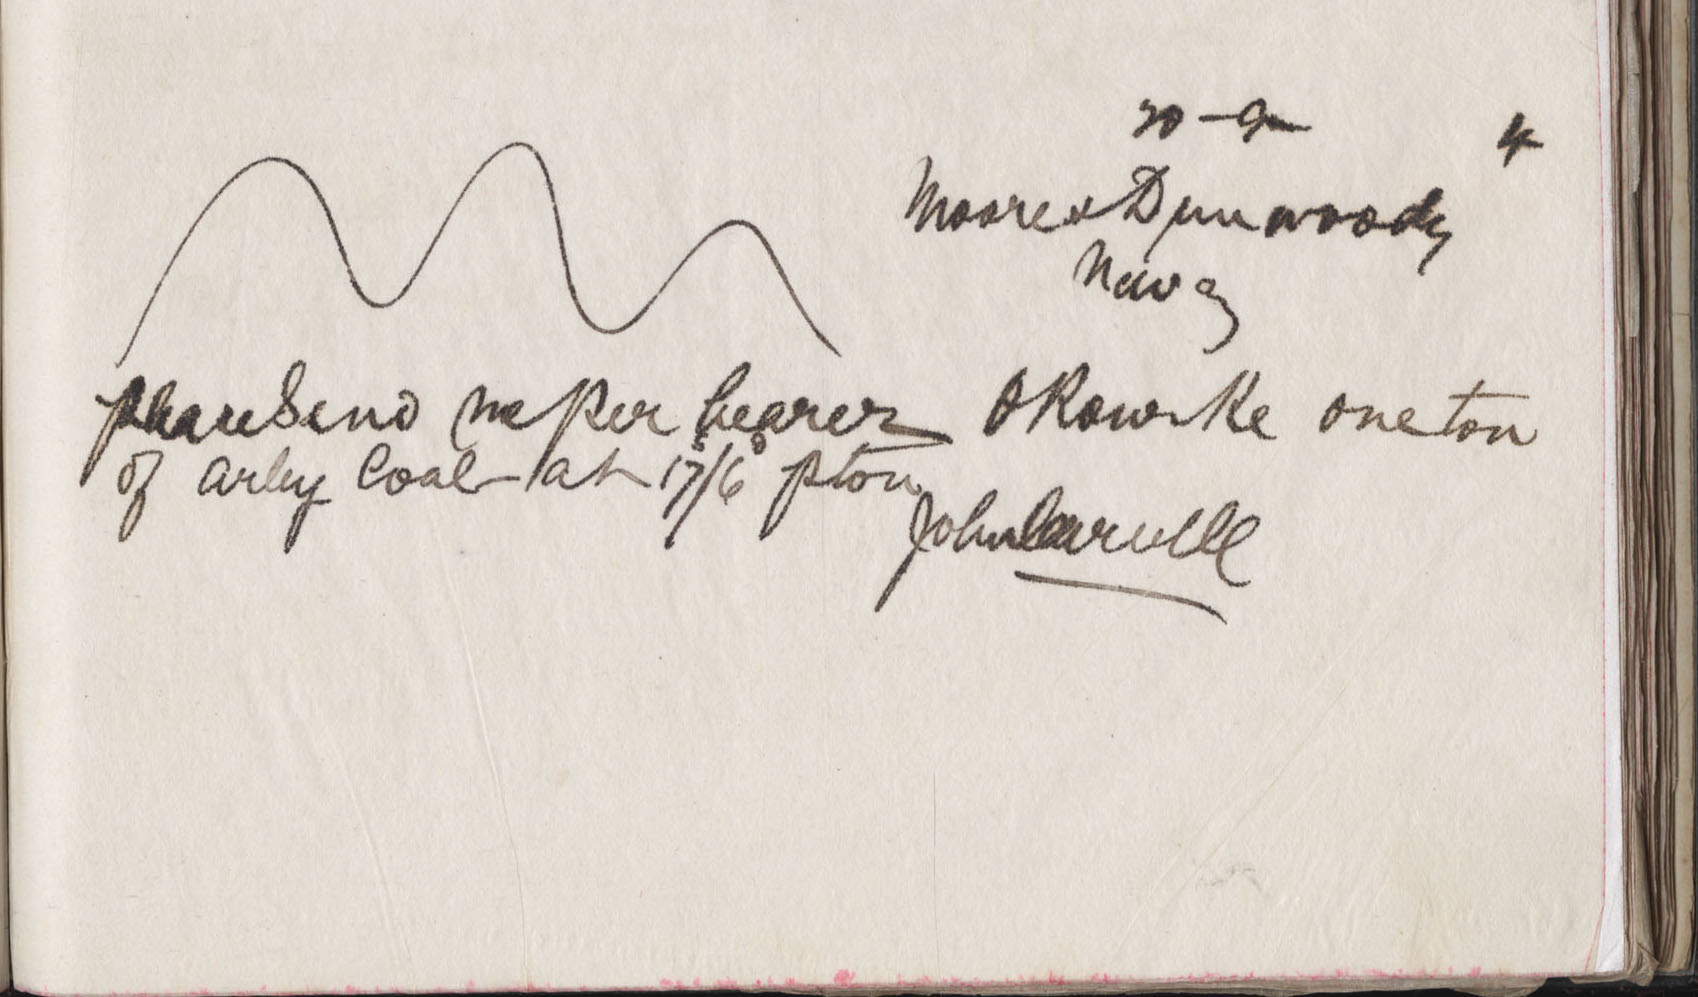 20 - 9 4
Moore & Dunwoody
Navan
please send me per bearer O Rourke one ton
of arley Coal at 17/6 p ton
John Carvill